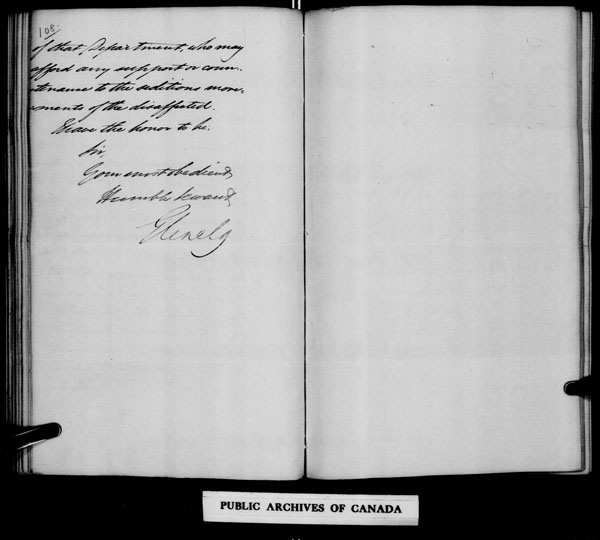 108.
of that Department, who may
afford any support or coun-
-tenance to the seditious move-
-ments of the disaffected.
I have the honor to be.
Sir,
Your most obedient
Humble Servant
Glenelg
PUBLIC ARCHIVES OF CANADA